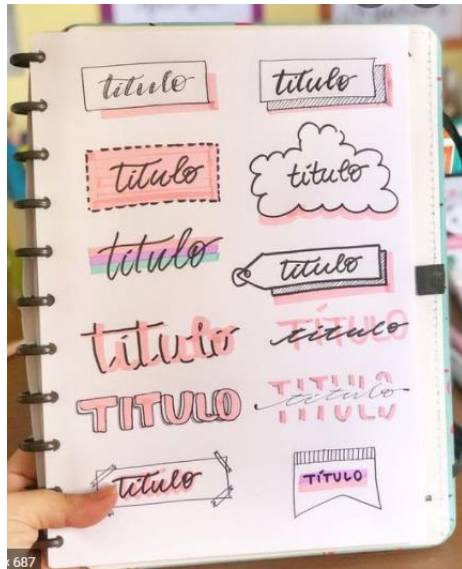 título
título
título
título
título
título
título
TÍTULO
título
TITULO
TITULO
título
título
TÍTULO
687